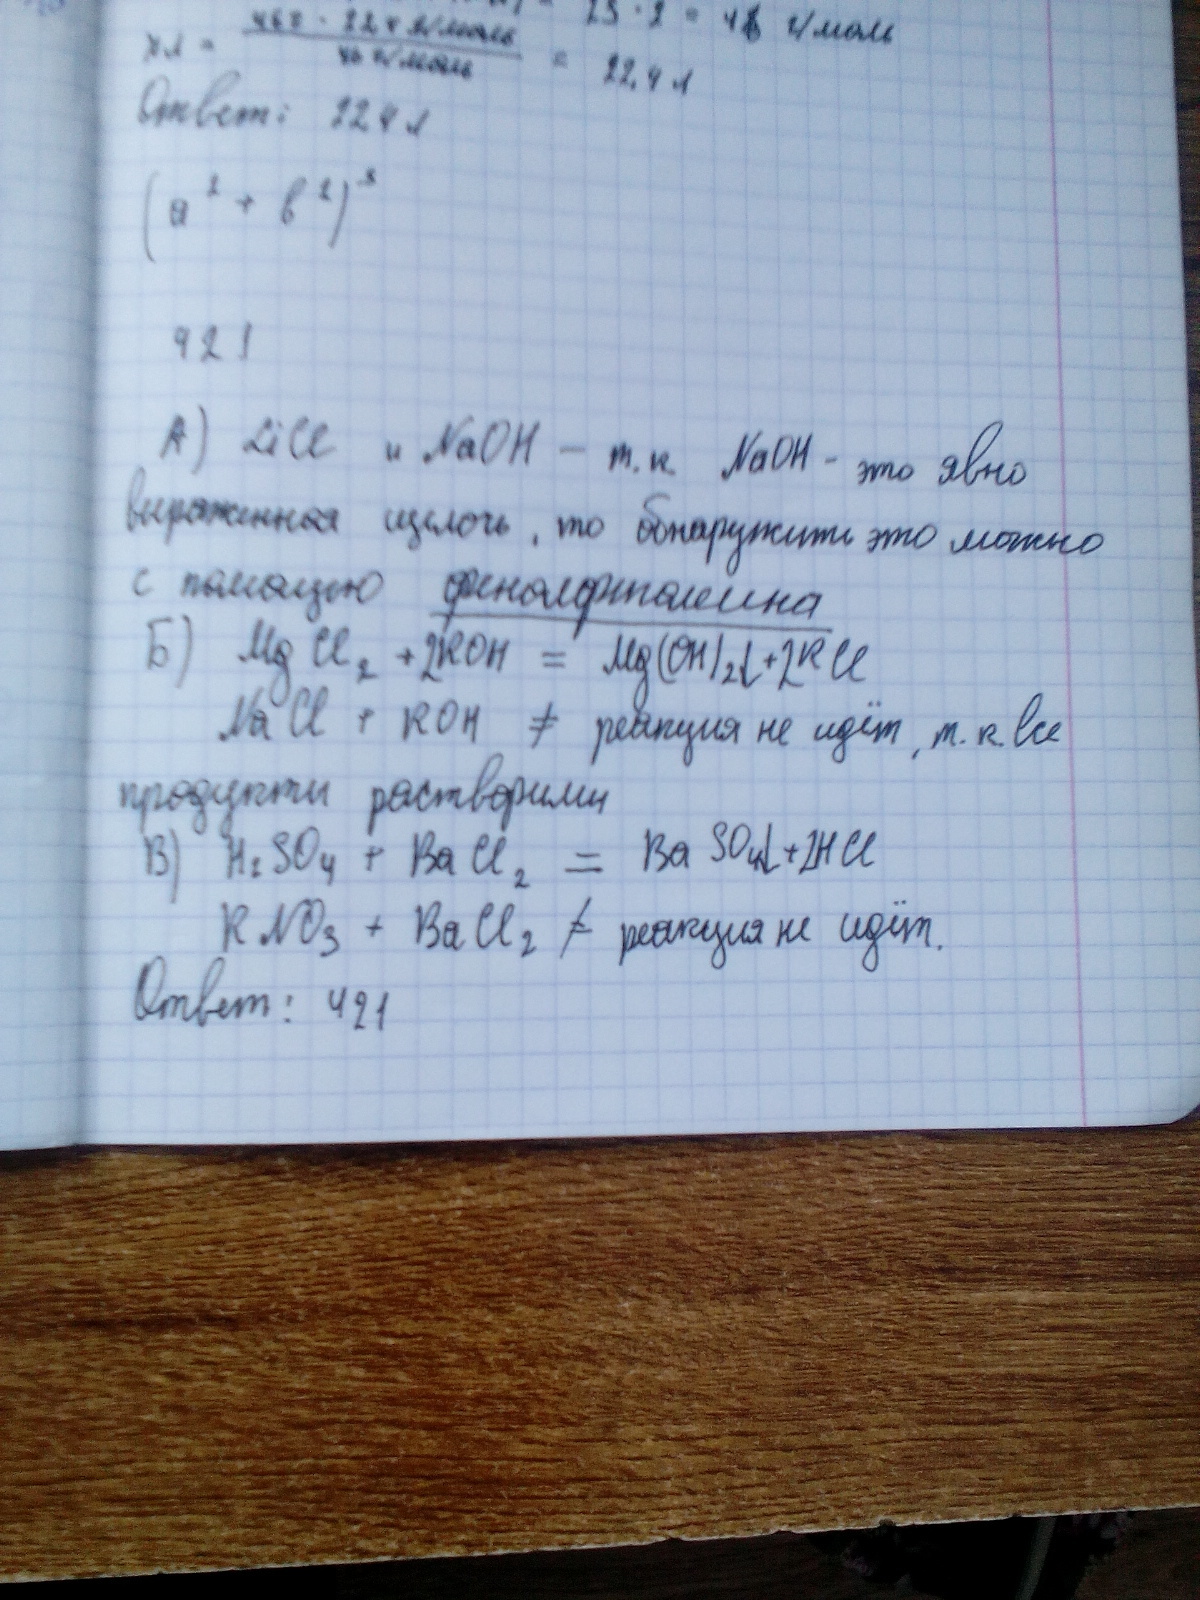 = 23 · 2 = 46 г/моль
хл = 46г · 22,4 л/моль / 46 г/моль = 22,4 л
Ответ: 22,4 л
(а² + в²)³
421
А) LiCl и NaOH – т.к. NaOH - это явно
выраженная щелочь, то обнаружить это можно
с помощью фенолфталеина
Б) MgCl₂ + 2KOH = Mg(OH)₂↓ + 2KCl
NaCl + KOH ≠ реакция не идёт, т.к. все
продукты растворимы
В) H₂SO₄ + BaCl₂ = BaSO₄↓ + 2HCl
KNO₃ + BaCl₂ ≠ реакция не идёт.
Ответ: 421